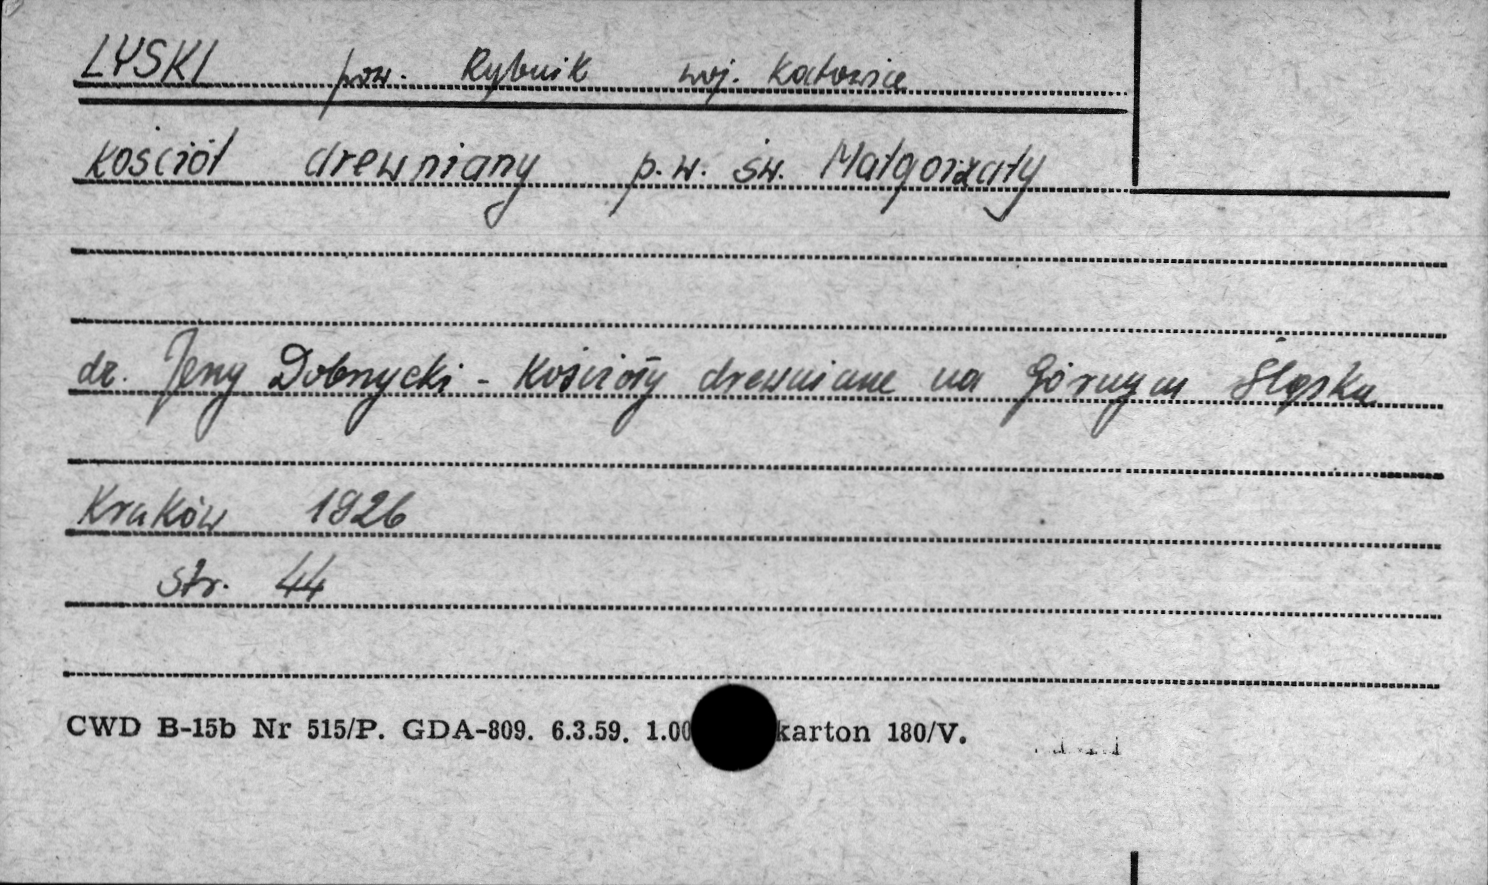 LYSKI pow. Rybnik woj. Katowice
Kościół drewniany p.w. św. Małgorzaty
dr. Jerzy Dobrzycki - Kościoły drewniane na Górnym Śląsku
Kraków 1926
Str. 44
CWD B-15b Nr 515/P. GDA-809. 6.3.59. 1.00 karton 180/V.